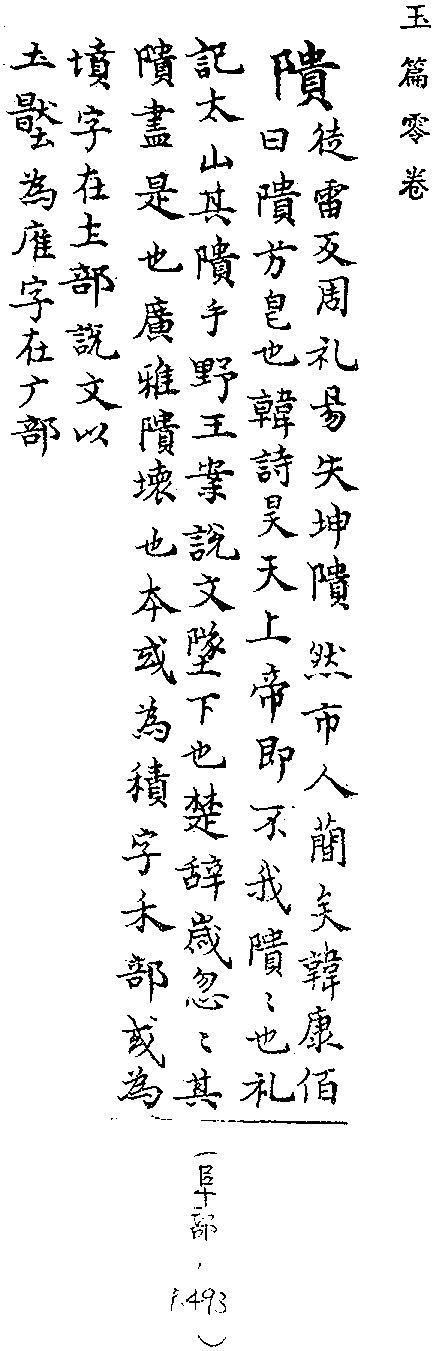 玉篇零卷
隤
徒雷反周礼易失坤隤然市人蕳矣韓康佰
曰隤芳皀也韓詩昊天上帝即不我隤〻也礼
記太山其隤乎野王案說文墜下也楚辞歲忽〻其
隤盡是也廣雅隤壞也本或為積字禾部或為
墳字在土部說文以
土猒為㢈字在广部
(阜部,
P.493)